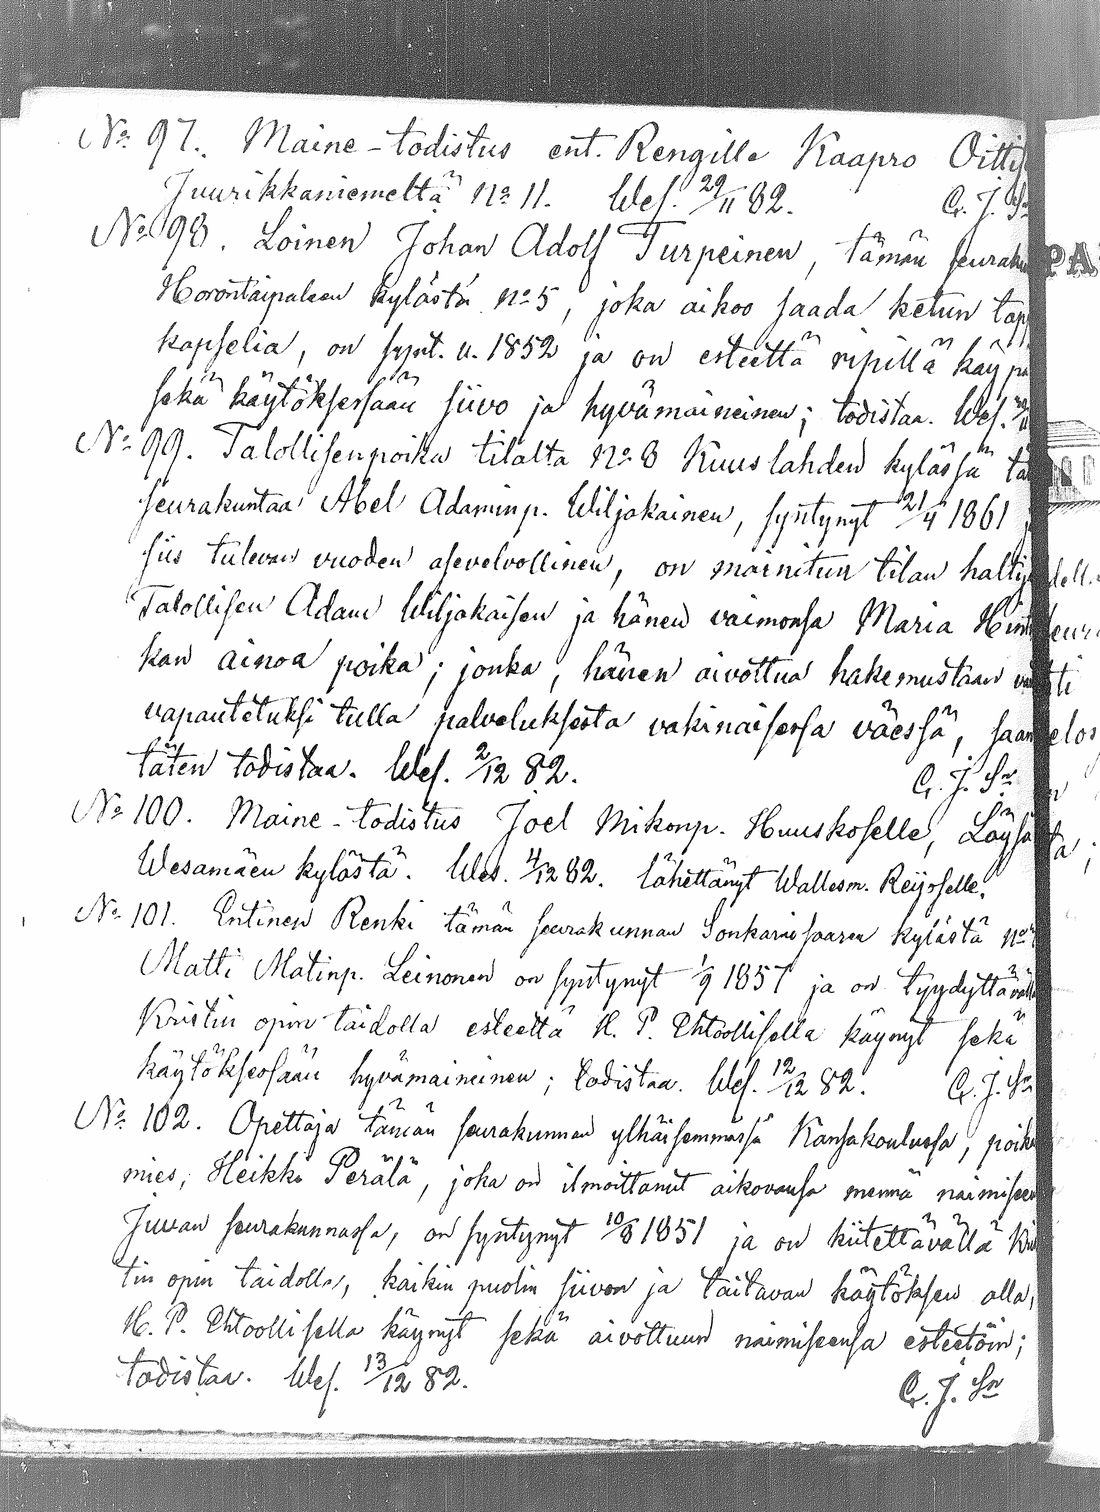 No 97. Maine-todistus ent. Rengille Kaapro Oitti
Juurikkaniemeltä No 11. Wes. 29/11 82. C. J. Sn
No 98. Loinen Johan Adolf Turpeinen, tämän seuraku
Horontaipaleen kylästä No 5, joka aikoo saada ketun tap
kapselia, on synt. v. 1852 ja on esteettä ripillä käyny
sekä käytöksessään siivo ja hyvämaineinen; todistaa. Wes.
No 99. Talollisenpoika tilalta No 8 Kuuslahden kylässä tä
seurakuntaa Abel Adaminp. Wiljakainen, syntynyt 21/4 1861
siis tulevan vuoden asevelvollinen, on mainitun tilan haltij
Talollisen Adam Wiljakaisen ja hänen vaimonsa Maria Hint
kan ainoa poika; jonka, hänen aivottua hakemustaan
vapautetuksi tulla palveluksesta vakinaisessa väessä, saan
täten todistaa. Wes. 2/12 82. C. J. Sn
No 100. Maine-todistus Joel Mikonp. Huuskoselle, Löysä
Wesamäen kylästä. Wes. 4/12 82. lähettänyt Wallesm. Reijoselle.
No 101. Entinen Renki tämän seurakunnan Sonkarisaaren kylästä No
Matti Matinp. Leinonen on syntynyt 1/9 1857 ja on tyydyttäväll
Kristin opin taidolla esteettä H. P. Ehtoollisella käynyt sekä
käytöksessään hyvämaineinen; todistaa. Wes. 12/12 82. C. J. Sn
No 102. Opettaja tämän seurakunnan ylhäisemmässä Kansakoulussa, poika
mies, Heikki Perälä, joka on ilmoittanut aikovansa mennä naimiseen
Juvan seurakunnassa, on syntynyt 10/8 1851 ja on kiitettävällä Kris
tin opin taidolla, kaikin puolin siivon ja taitavan käytöksen alla,
H. P. Ehtoollisella käynyt sekä aivottuun naimiseensa esteetöin;
todistaa. Wes. 13/12 82. C. J. Sn